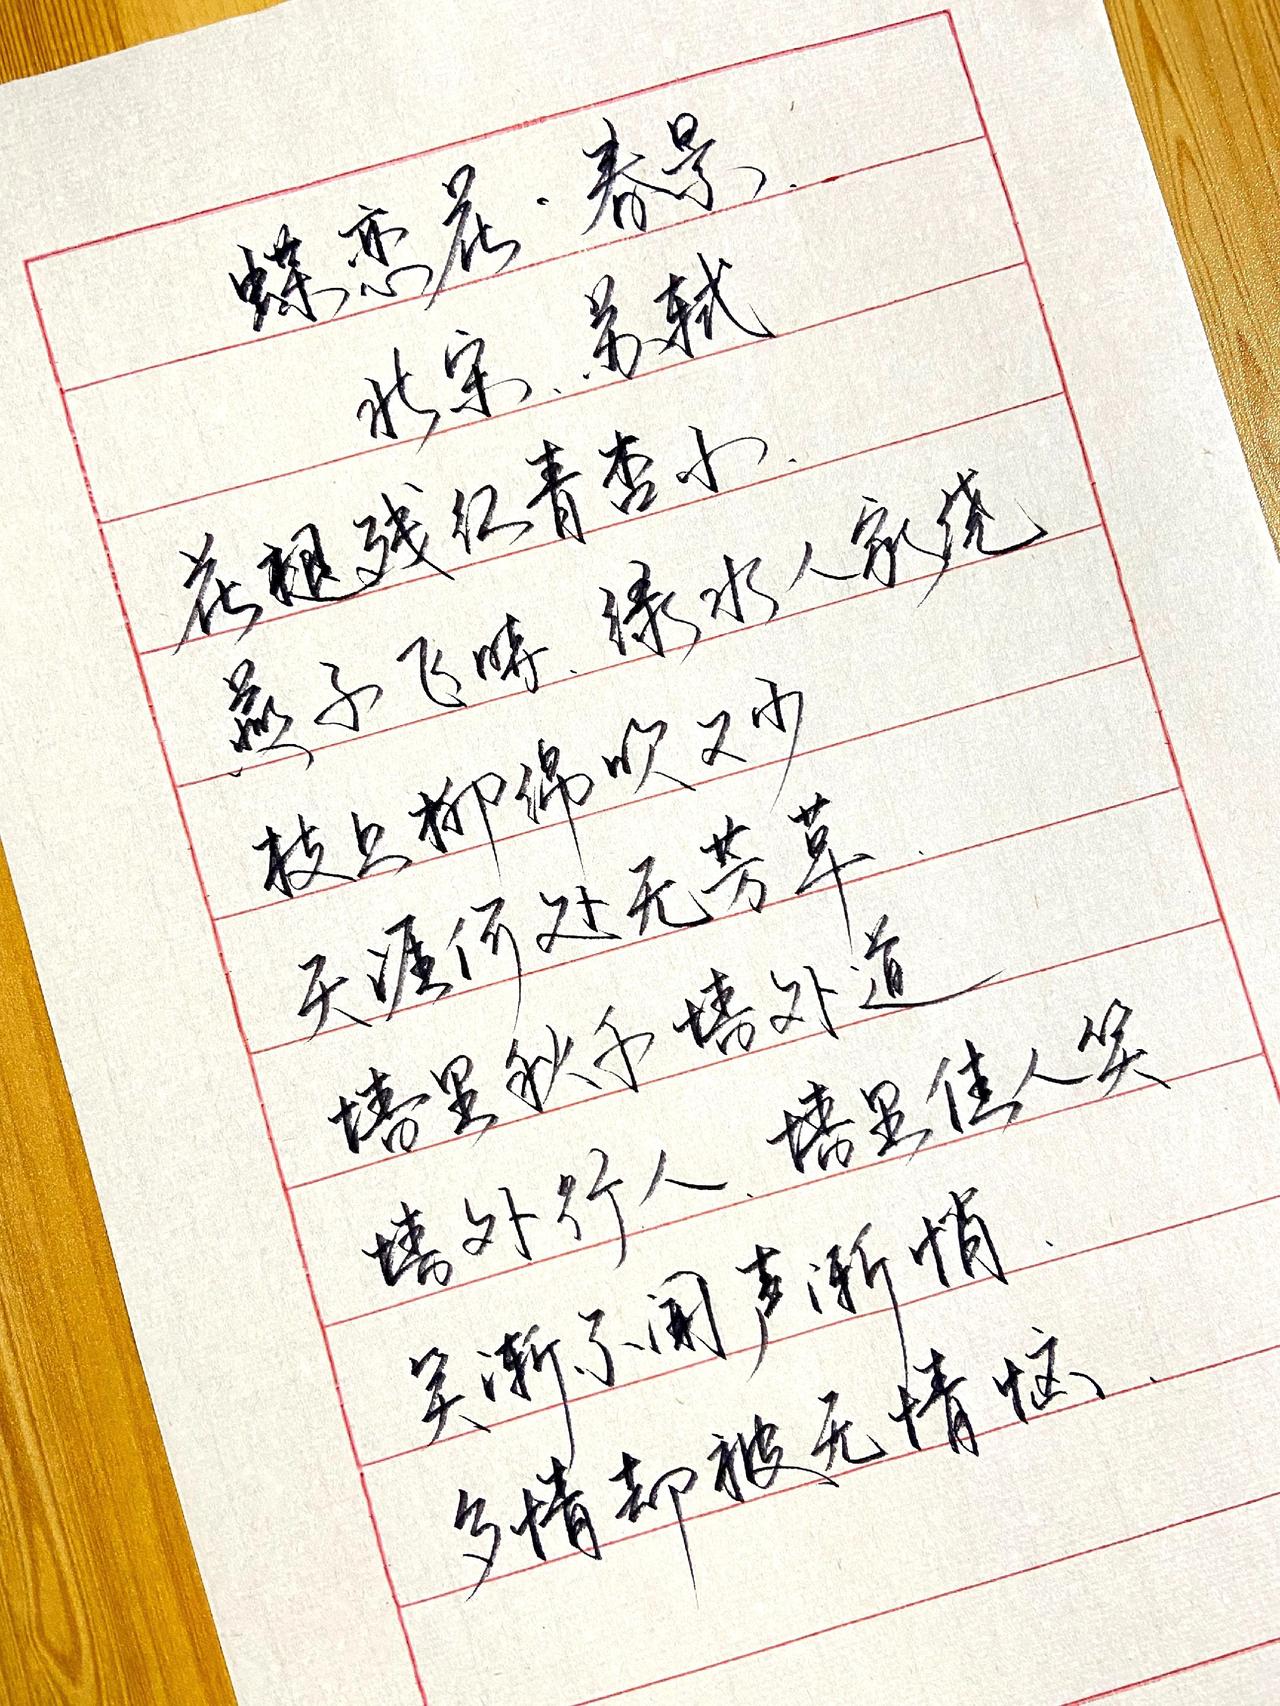 蝶恋花·春景.
北宋.苏轼
花褪残红青杏小.
燕子飞时.绿水人家绕
枝上柳绵吹又少
天涯何处无芳草.
墙里秋千墙外道
墙外行人.墙里佳人笑
笑渐不闻声渐悄.
多情却被无情恼.